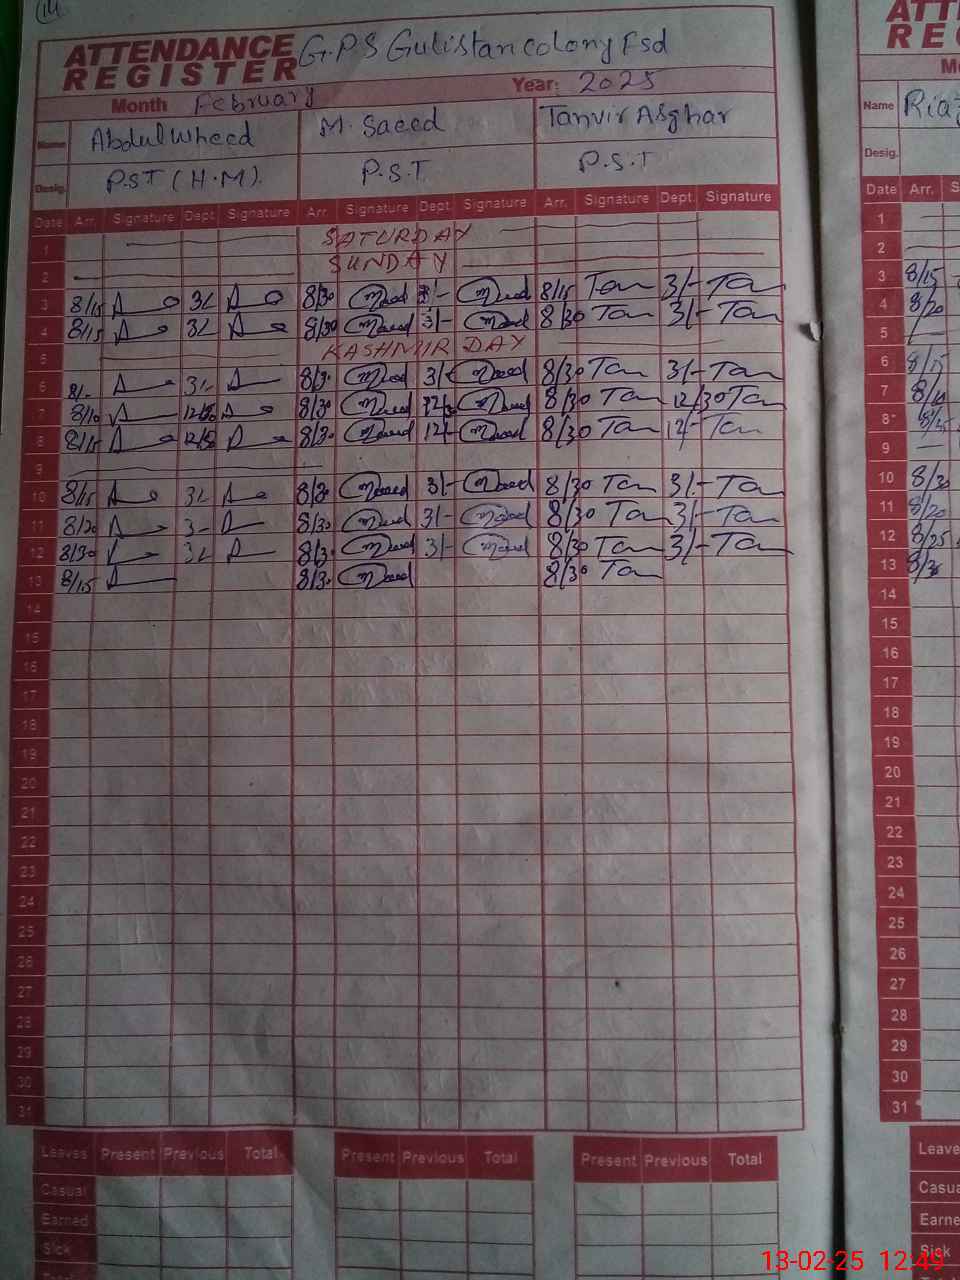 14
ATTENDANCE REGISTER G.P.S Gulistan colony Fsd
Month February Year: 2025
Name Abdul Wheed M. Saeed Tanvir Asghar
Desig. P.S.T (H.M). P.S.T P.S.T
Date Arr. Signature Dept. Signature Arr. Signature Dept. Signature Arr. Signature Dept. Signature
1 SATURDAY
2 SUNDAY
3 8/15 3/- 8/30 3/- 8/15 Tan 3/- Tan
4 8/15 3/- 8/30 3/- 8/30 Tan 3/- Tan
5 KASHMIR DAY
6 8/- 3/- 8/30 3/- 8/30 Tan 3/- Tan
7 8/10 12/30 8/30 8/30 Tan 12/30 Tan
8 8/15 8/30 12/- 8/30 Tan 12/- Tan
9
10 8/15 3/- 8/30 3/- 8/30 Tan 3/- Tan
11 8/20 3/- 8/30 3/- 8/30 Tan 3/- Tan
12 8/30 3/- 8/30 3/- 8/30 Tan 3/- Tan
13 8/15 8/30 8/30 Tan
14
15
16
17
18
19
20
21
22
23
24
25
26
27
28
29
30
31
Leaves Present Previous Total Present Previous Total Present Previous Total
Casual
Earned
Sick
ATT
RE
M
Name Riaz
Desig.
Date Arr. S
1
2
3 8/15
4 8/20
5
6 8/15
7 8/10
8
9
10 8/30
11 8/20
12 8/25
13 8/30
14
15
16
17
18
19
20
21
22
23
24
25
26
27
28
29
30
31
Leave
Casua
Earne
Sick
13-02-25 12:49